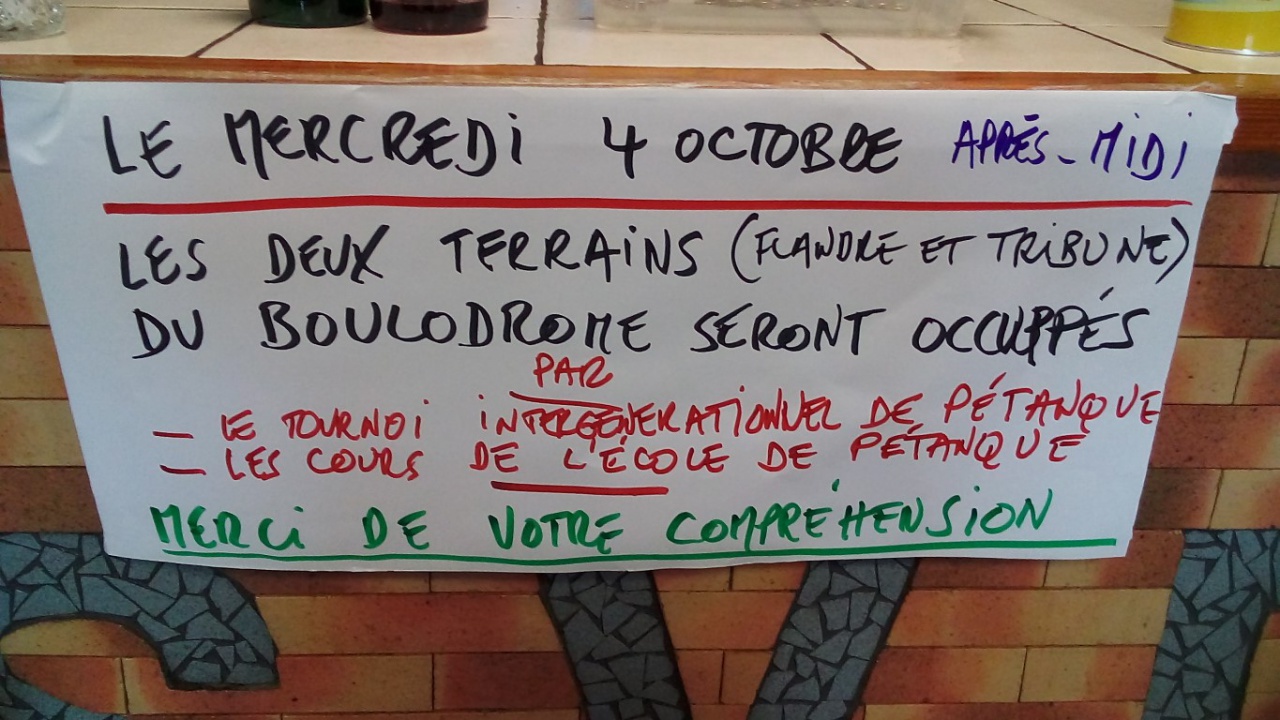 LE MERCREDI 4 OCTOBRE APRÈS-MIDI
LES DEUX TERRAINS (FLANDRE ET TRIBUNE)
DU BOULODROME SERONT OCCUPPÉS
PAR
— LE TOURNOI INTERGENERATIONNEL DE PÉTANQUE
— LES COURS DE L'ÉCOLE DE PÉTANQUE
MERCI DE VOTRE COMPRÉHENSION